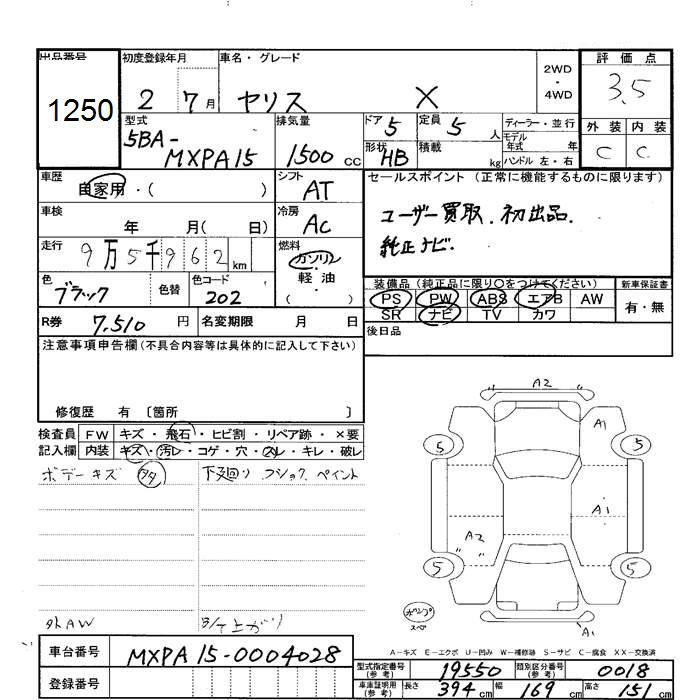 出品番号
1250
初度登録年月
2 7月
車名・グレード
ヤリス X
2WD・4WD
評価点
3.5
外装 内装
C C
型式
5BA-MXPA15
排気量
1500 cc
ドア 5
定員 5 人
形状 HB
積載 kg
ディーラー・並行
モデル年式 年
ハンドル 左・右
車歴
自家用・( )
シフト
AT
セールスポイント (正常に機能するものに限ります)
ユーザー買取. 初出品.
純正ナビ.
車検
年 月( 日)
冷房
AC
走行
9万5千962 km
燃料
ガソリン・軽油
( )
色
ブラック
色替
色コード
202
装備品 (純正品に限り○をつけてください)
PS PW ABS エアB AW
SR ナビ TV カワ
新車保証書
有・無
R券 7,510 円
名変期限 月 日
後日品
注意事項申告欄 (不具合内容等は具体的に記入して下さい)
修復歴 有 〔箇所 〕
検査員記入欄
FW キズ・飛石・ヒビ割・リペア跡・×要
内装 キズ・汚レ・コゲ・穴・スレ・キレ・破レ
ボデーキズ 多々
下廻り フショク ペイント
外AW
A2
A1
5 5
A1
A2
5 5
スペ
A1
A−キズ E−エクボ U−凹み W−補修跡 S−サビ C−腐食 XX−交換済
車台番号 MXPA15-0004028
登録番号
型式指定番号(参考) 19550
類別区分番号(参考) 0018
車庫証明用(参考) 長さ 394 cm 幅 169 cm 高さ 151 cm